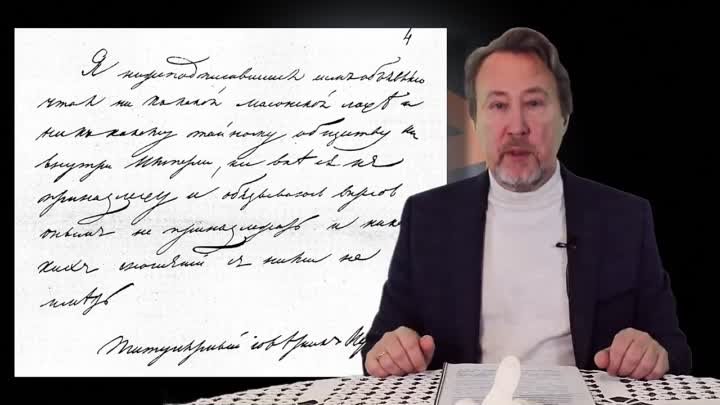 4
Я нижеподписавшійся симъ объявляю
что я ни къ какой масонской ложѣ и
ни къ какому тайному обществу ни
внутри Имперіи, ни внѣ ея не
принадлежу и обязываюсь впредь
онымъ не принадлежать и ника
кихъ сношеній съ ними не
имѣть
Титулярный